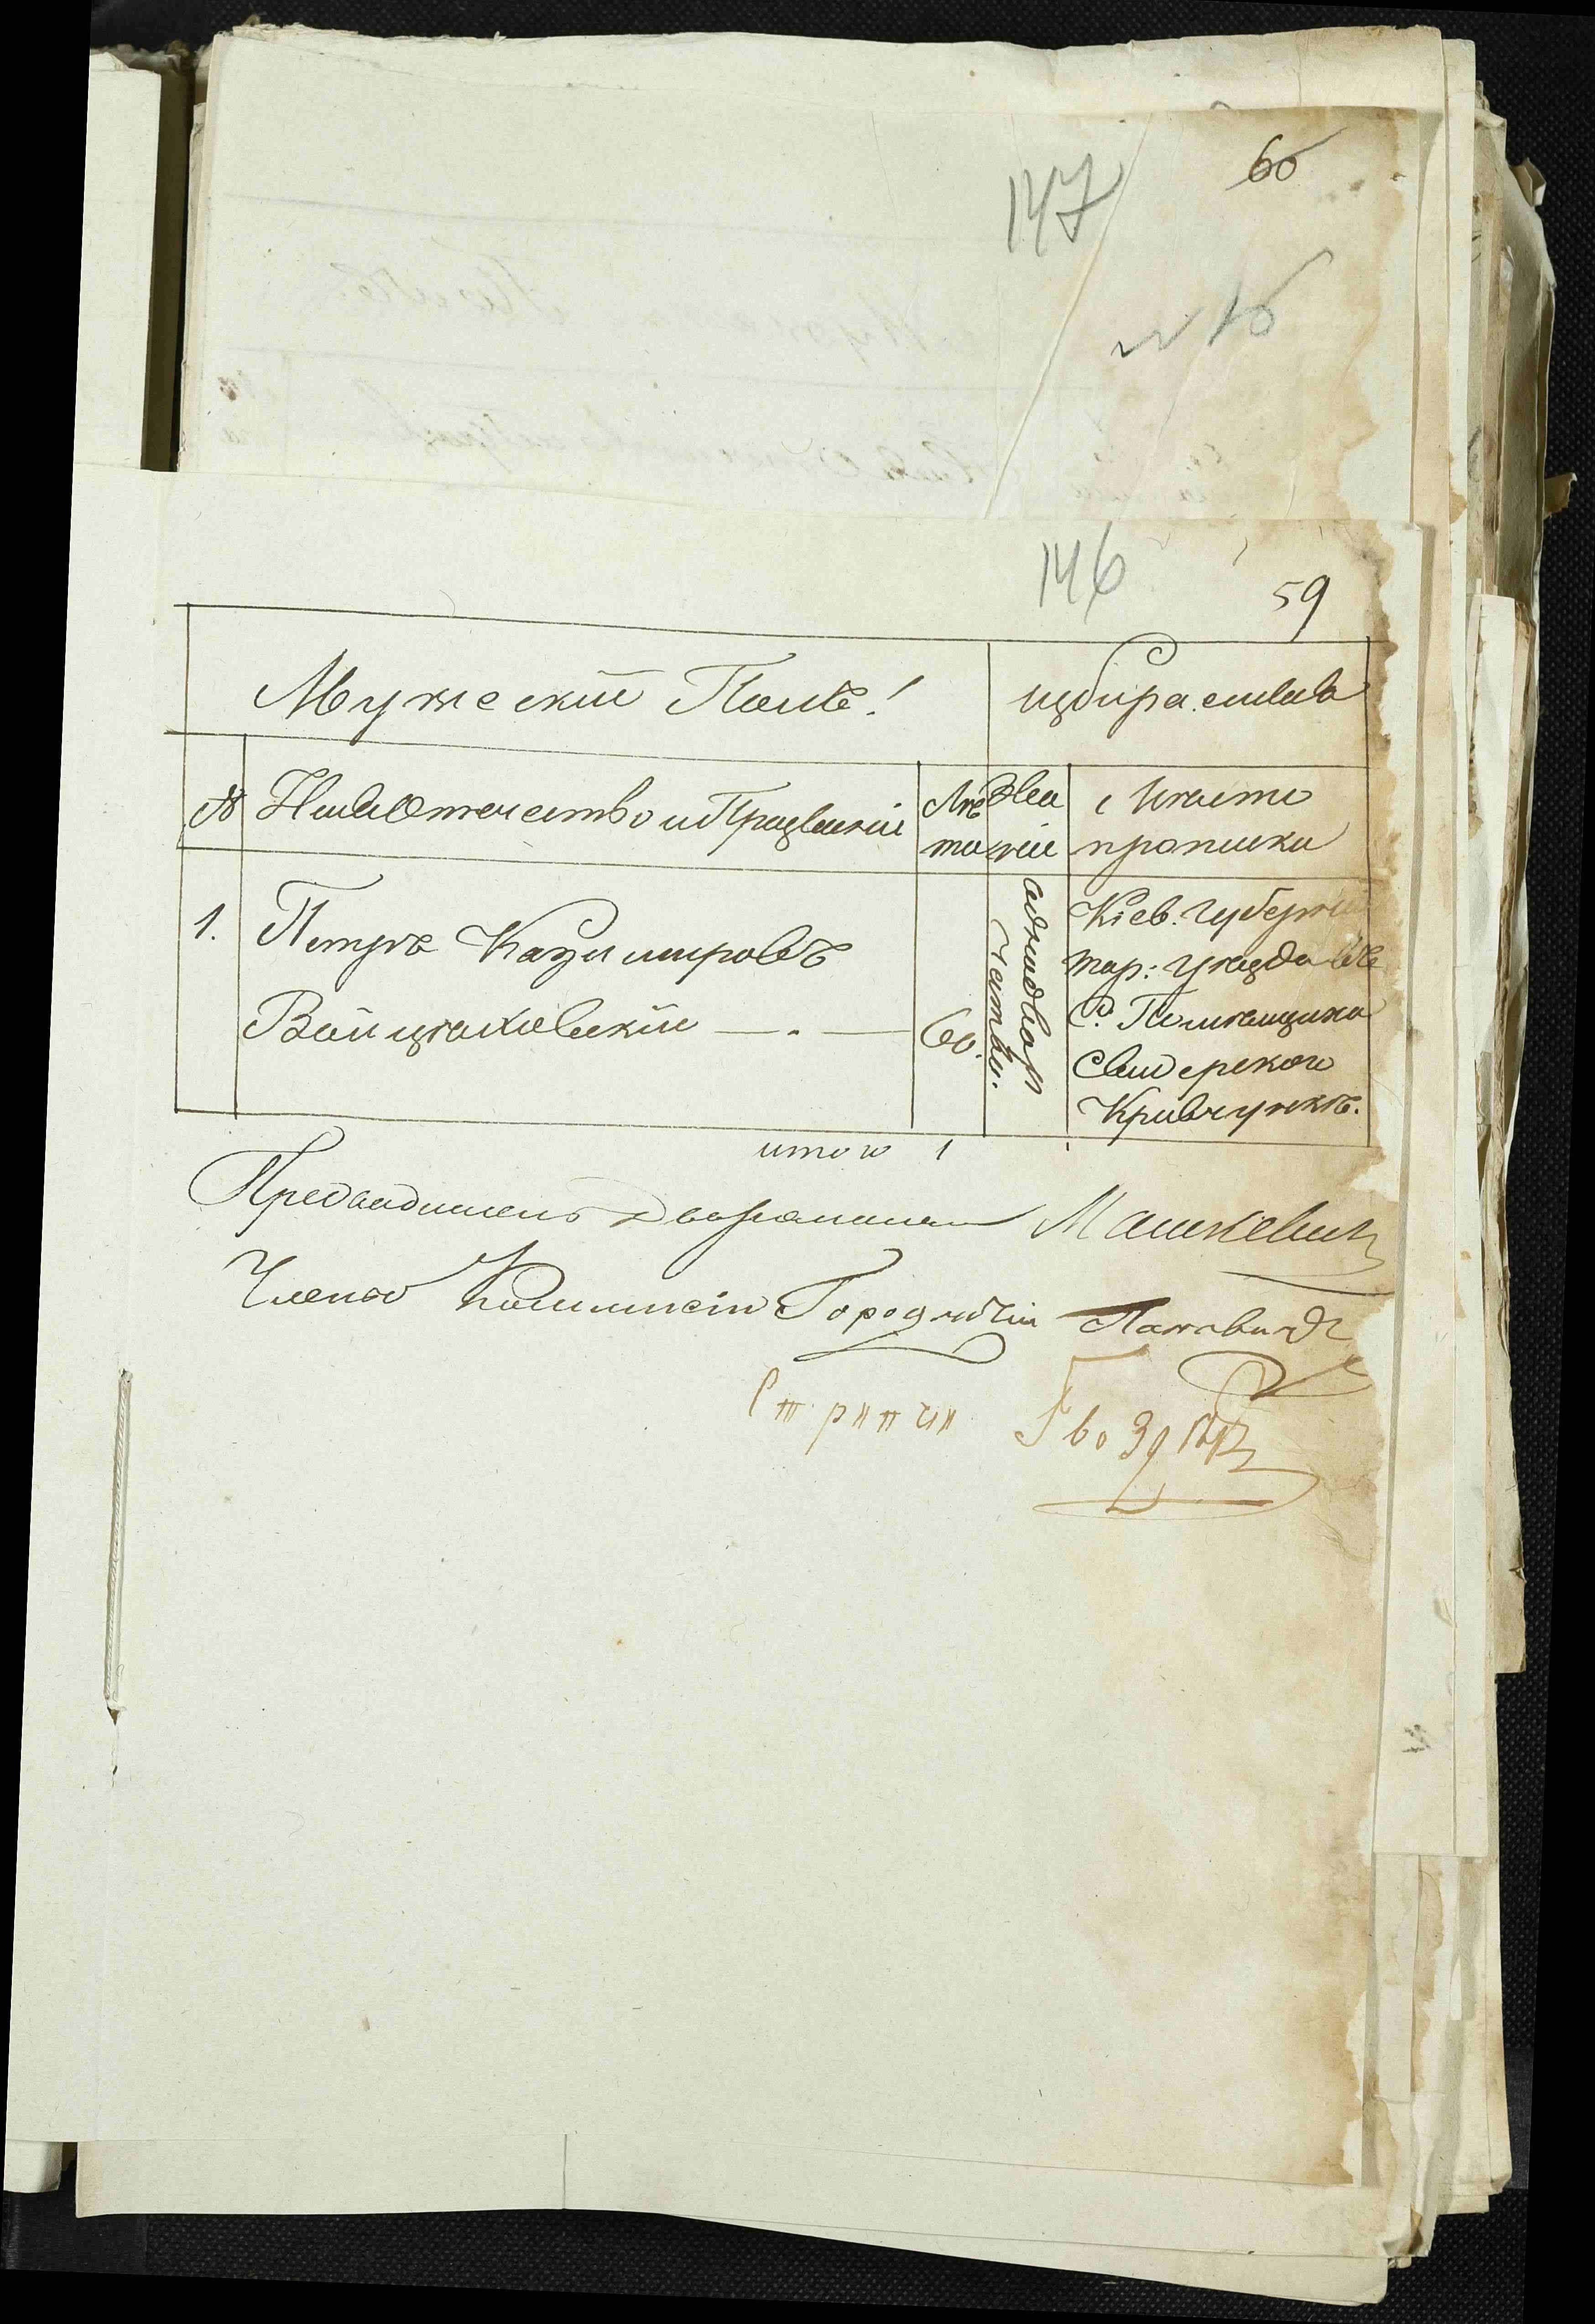 60
147
№ 16
146
59
Мужескій Полъ!
№ Имя Отчество и Прозваніе
Лѣта
Званіе
Мѣсто прописки
1. Петръ Казимировъ
Войцѣховскій — . —
60.
однодворчество.
Кіев. Губерніи
тар: уѣзда въ
С. Помѣщика
Свидерского
Кривчункѣ.
итого 1
Предводитель Дворянства Машкевичъ
Членъ Коммисіи Городничій
Стряпчи